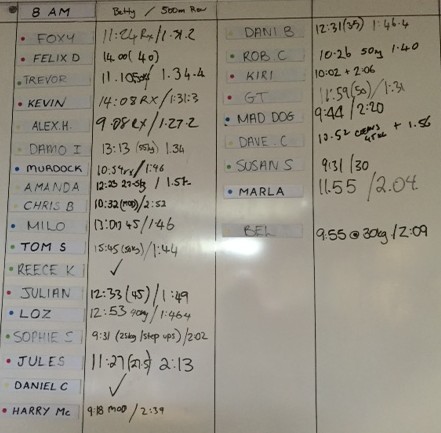 8 AM Betty / 500m Row
FOXY 11:24 Rx / 1:31.2
FELIX D 14.00 ( 40)
TREVOR 11.10 1.34.4
KEVIN 14:08 RX / 1:31:3
ALEX.H. 9.08 RX / 1.27.2
DAMO I 13:13 (55kg) 1.34
MURDOCK / 1:46
AMANDA 12:25 27.5kg /
CHRIS B 10:32 (MOD) / 2:52
MILO 45 / 1:46
TOM S 15:45 (50kg) / 1:44
REECE K ✓
JULIAN 12:33 (45) / 1:49
LOZ 12:53 40kg / 1:46.4
SOPHIE S 9:31 (25kg / step ups) / 2:02
JULES 11:27 (27.5) 2:13
DANIEL C ✓
HARRY Mc 9:18 MOD / 2:39
DANI B 12:31 (35) 1:46.4
ROB C 10:26 50kg 1:40
KIRI 10:02 + 2:06
GT 11:59 (50) / 1:31
MAD DOG 9:44 / 2:20
DAVE C 10.52 + 1.56
SUSAN S 9:31 / 30
MARLA 11.55 / 2.04
BEL 9:55 @ 30kg / 2:09